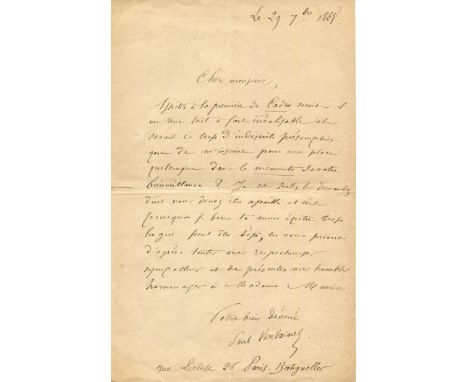 Le 29 7bre 1868.
Cher monsieur,
Assister à la première de Cadio serait-il
un rêve tout à fait irréalisable et
serait-ce trop d'indiscrète présomption
que de m'inscrire pour une place
quelconque dans le memento de votre
bienveillance ? Je sais toutes les demandes
dont vous devez être
pourquoi je borne là mon épître trop
longue peut-être déjà, en vous priant
d'agréer toutes mes respectueuses
sympathies et de présenter mes humbles
hommages à Madame Meurice
Votre bien dévoué
Paul Verlaine
rue Lécluse 26 Paris-Batignolles